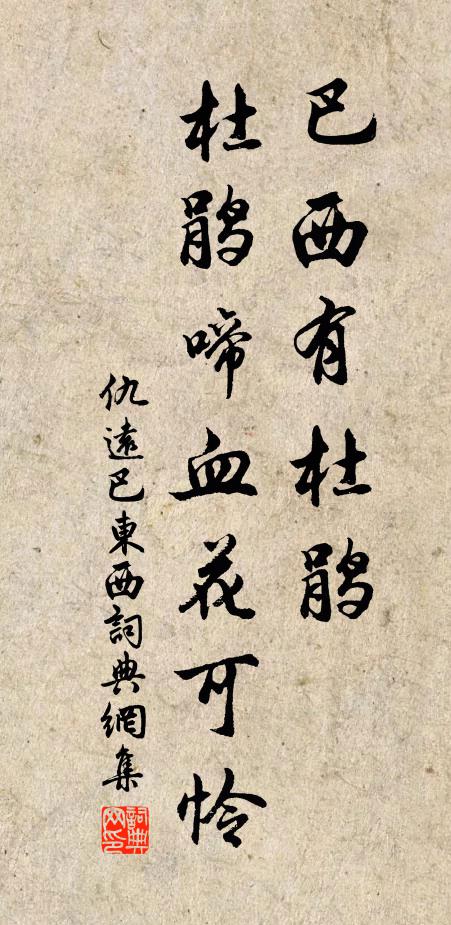 巴西有杜鹃
杜鹃啼血花可怜
仇遠巴東西詞典網集
詞典网印